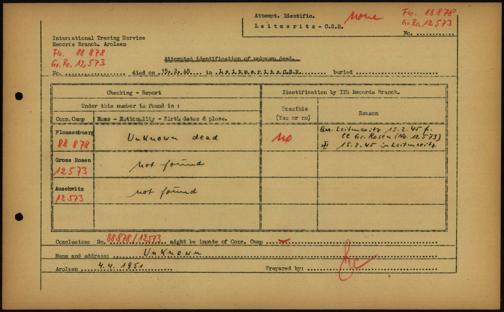 Attempt. Identific.
Leitmeritz - C.S.R.
none
Flo. 88 878
Gr.Ro. 12 573
No.
International Tracing Service
Records Branch, Arolsen
Flo. 88 878
Gr.Ro. 12 573
Attempted identification of unknown dead.
No. died on 15.2.45 in Leitmeritz C.S.R. buried
Checking - Report
Identification by ITS Records Branch.
Under this number is found in :
Possible
(Yes or no)
Reason
Conc. Camp
Name - Nationality - Birth dates & place.
Flossenburg
88 878
Unknown dead
no
Gross Rosen
12573
not found
15.2.45 in Leitmeritz
Auschwitz
12573
not found
Conclusion: No. 88878/12573 might be inmate of Conc. Camp
Name and address: Unknown
Arolsen 4.4.1951
Prepared by: